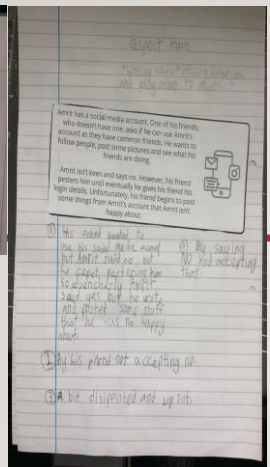 respect man
and
to
Amrit has a social media account. One of his friends,
who doesn't have one, asks if he can use Amrit's
account as they have common friends. He wants to
follow people, post some pictures and see what his
friends are doing.
Amrit isn't keen and says no. However, his friend
pesters him until eventually he gives his friend his
login details. Unfortunately, his friend begins to post
some things from Amrit's account that Amrit isn't
happy about.
His friend wanted to
use his social media
but Amrit said no, but
he pestering him
So Amrit
said yes but he wrote
and posted some stuff
that he was no happy
about.
By saying
NO and accepting
that.
① By his friend not accepting no.
③ A bit disiponted and up sut.